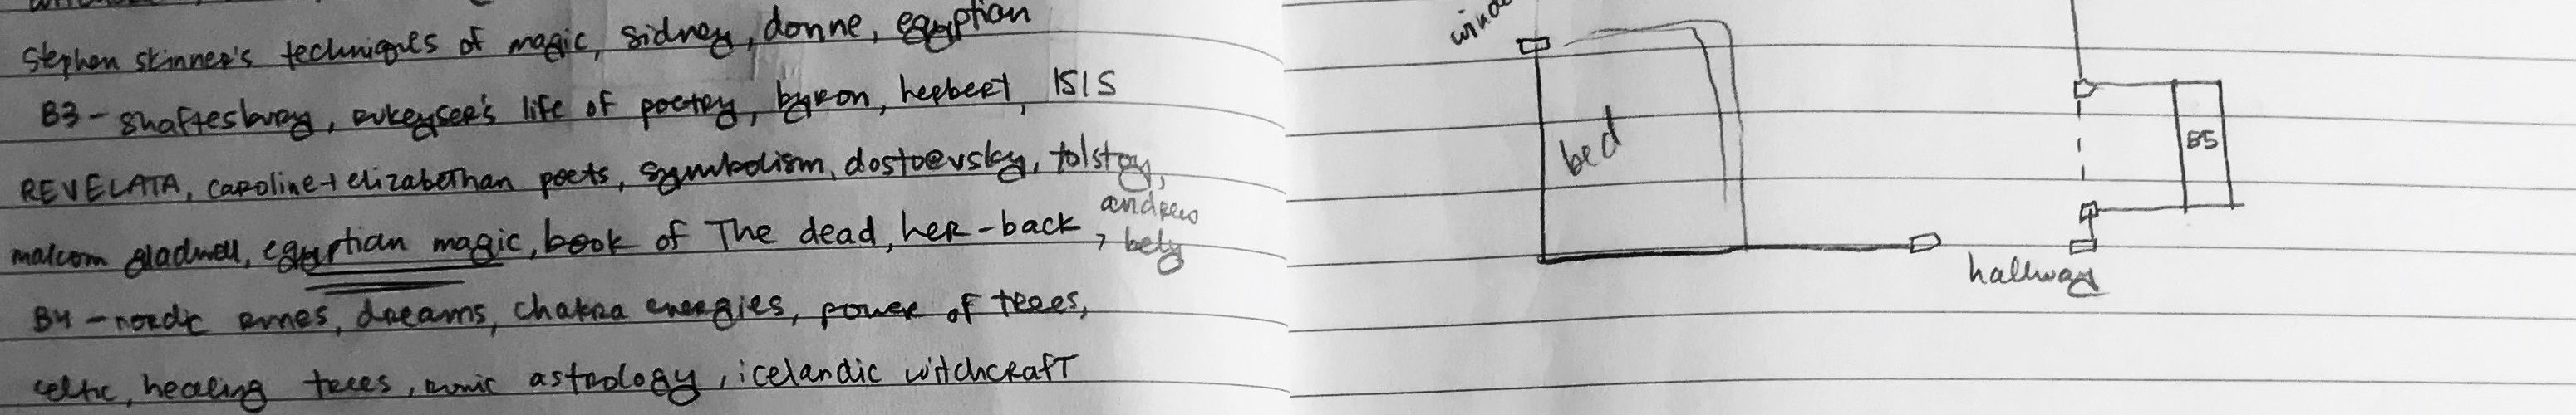 Stephen skinner's techniques of magic, sidney, donne, egyptian
B3 - shaftesbury, rukeyser's life of poetry, byron, herbert, ISIS
REVELATA, caroline + elizabethan poets, symbolism, dostoevsky, tolstoy,
malcom gladwell, egyptian magic, book of The dead, her-back, andrew bely
B4 - nordic runes, dreams, chakra energies, power of trees,
celtic, healing trees, runic astrology, icelandic witchcraft
bed
B5
hallway